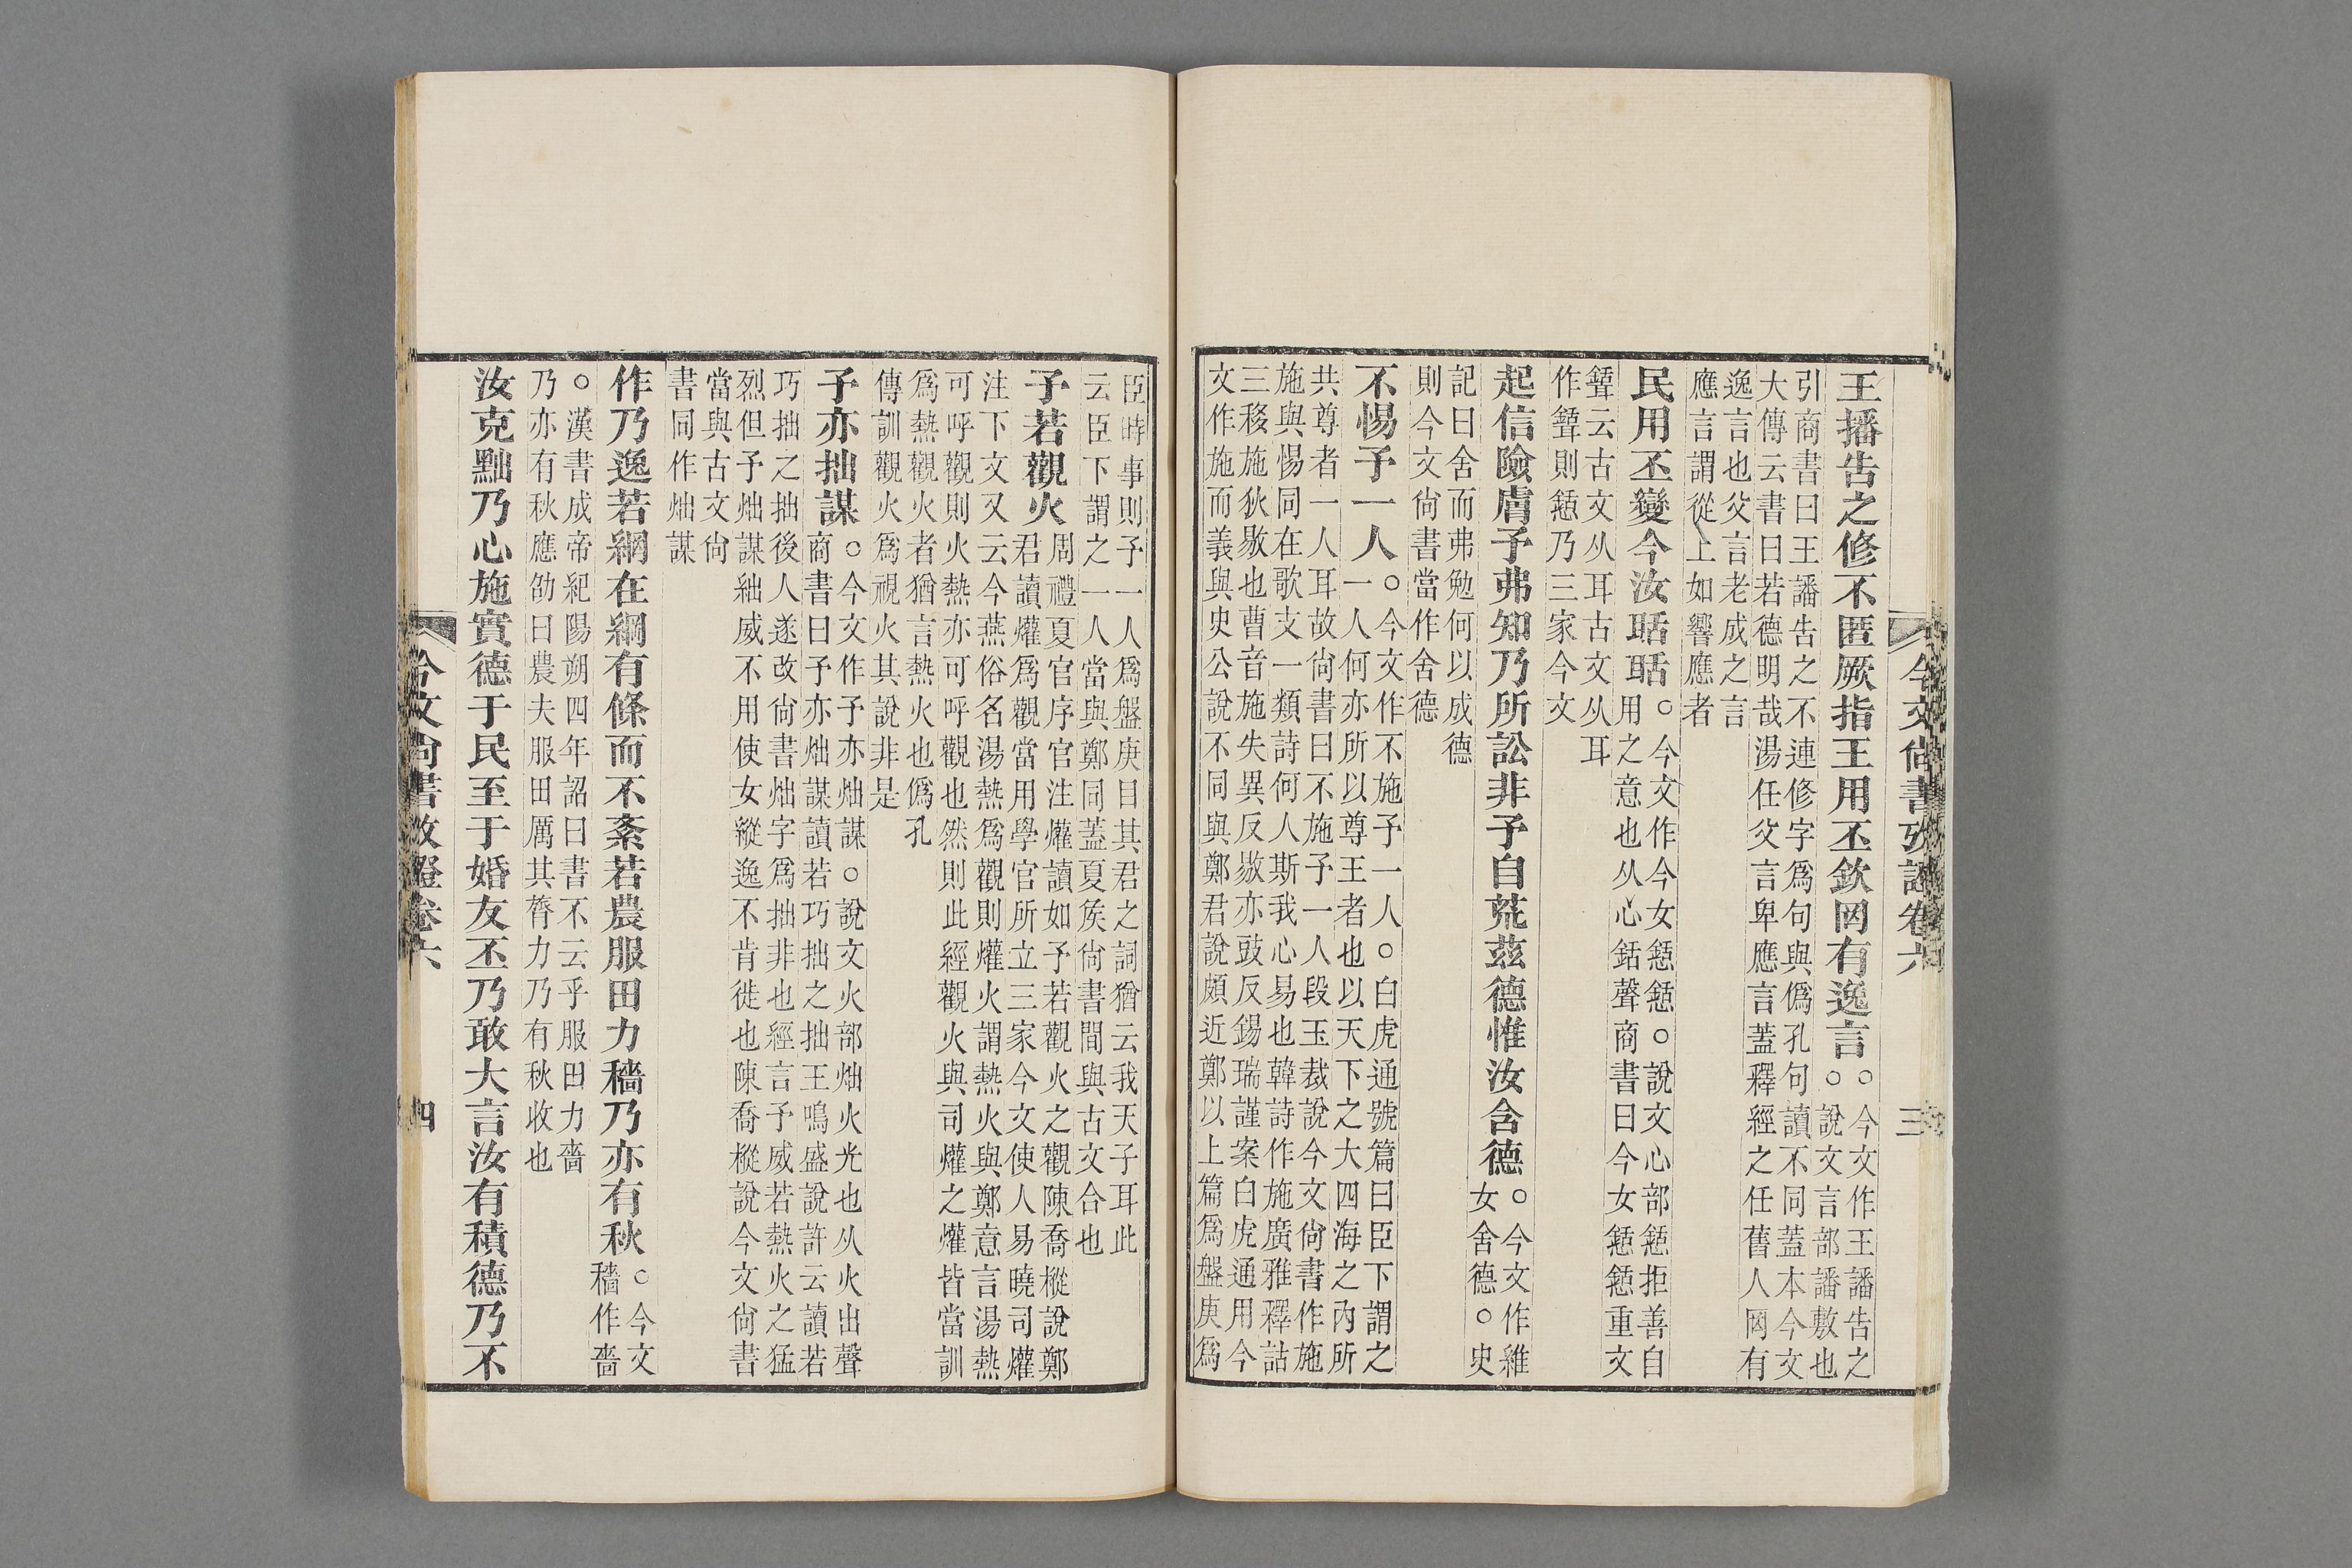 今文尙書攷證卷六
三
王播告之修不匿厥指王用丕欽罔有逸言。今文作王譒告之
。說文言部譒敷也
引商書曰王譒告之不連修字爲句與僞孔句讀不同蓋本今文
大傳云書曰若德明哉湯任㕛言卑應言蓋釋經之任舊人罔有
逸言也㕛言老成之言
應言謂從上如響應者
民用丕變今汝聒聒。今文作今女懖懖。說文心部懖拒善自
用之意也从心銛聲商書曰今女懖懖重文
𦧧云古文从耳古文从耳
作𦧧則懖乃三家今文
起信險膚予弗知乃所訟非予自荒茲德惟汝含德。今文作維
女舍德。史
記曰舍而弗勉何以成德
則今文尙書當作舍德
不惕予一人。今文作不施予一人。白虎通號篇曰臣下謂之
一人何亦所以尊王者也以天下之大四海之內所
共尊者一人耳故尙書曰不施予一人段玉裁說今文尙書作施
施與惕同在歌支一類詩何人斯我心易也韓詩作施廣雅釋詁
三移施狄敡也曹音施失異反敡亦豉反錫瑞謹案白虎通用今
文作施而義與史公說不同與鄭君說頗近鄭以上篇爲盤庚爲
臣時事則予一人爲盤庚目其君之詞猶云我天子耳此
云臣下謂之一人當與鄭同蓋夏矦尙書閒與古文合也
予若觀火周禮夏官序官注爟讀如予若觀火之觀陳喬樅說鄭
君讀爟爲觀當用學官所立三家今文使人易曉司爟
注下文又云今燕俗名湯熱爲觀則爟火謂熱火與鄭意言湯熱
可呼觀則火熱亦可呼觀也然則此經觀火與司爟之爟皆當訓
爲熱觀火者猶言熱火也僞孔
傳訓觀火爲視火其說非是
予亦拙謀。今文作予亦灿謀。說文火部灿火光也从火出聲
商書曰予亦灿謀讀若巧拙之拙王鳴盛說許云讀若
巧拙之拙後人遂改尙書灿字爲拙非也經言予威若熱火之猛
烈但予灿謀絀威不用使女縱逸不肯徙也陳喬樅說今文尙書
當與古文尙
書同作灿謀
作乃逸若網在綱有條而不紊若農服田力穡乃亦有秋。今文
穡作嗇
。漢書成帝紀陽朔四年詔曰書不云乎服田力嗇
乃亦有秋應劭曰農夫服田厲其膂力乃有秋收也
汝克黜乃心施實德于民至于婚友丕乃敢大言汝有積德乃不
今文尙書攷證卷六
四